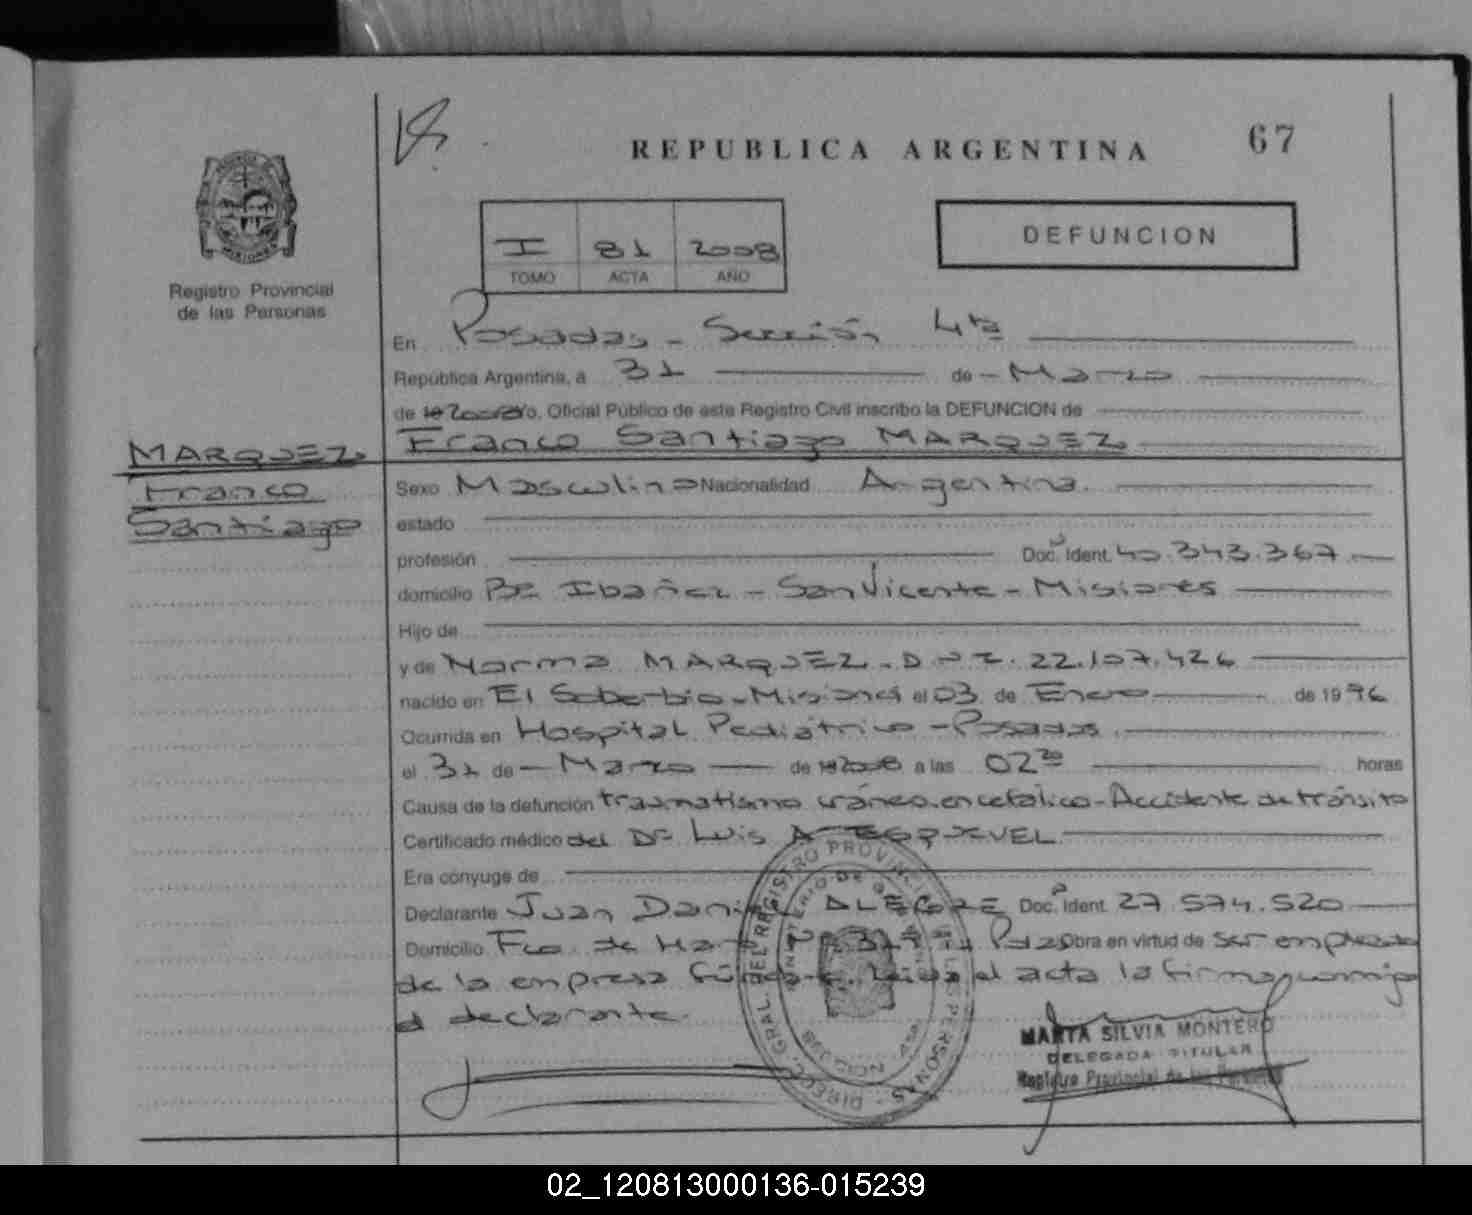 REPUBLICA ARGENTINA 67
MISIONES
Registro Provincial
de las Personas
I 81 2008
TOMO ACTA AÑO
DEFUNCION
En Posadas - Sección 4ta
República Argentina, a 31 de - Marzo
de 19 2008 Yo, Oficial Público de este Registro Civil inscribo la DEFUNCION de
Franco Santiago MARQUEZ
MARQUEZ
Franco
Santiago
Sexo Masculino Nacionalidad Argentina.
estado
profesión Doc. Ident. 40.343.367
domicilio Bº Ibañez - San Vicente - Misiones
Hijo de
y de Norma MARQUEZ - D.N.I. 22.107.426
nacido en El Soberbio - Misiones el 03 de Enero de 1996
Ocurrida en Hospital Pediátrico - Posadas
el 31 de - Marzo de 19 2008 a las 02 20 horas
Causa de la defunción traumatismo cráneo encefálico - Accidente de tránsito
Certificado médico del Dr Luis A ESQUIVEL
Era cónyuge de
Declarante Juan Daniel ALEGRE Doc. Ident. 27.574.520
Domicilio Fco. de Haro Obra en virtud de ser empleado
de la empresa el acta la firma conmigo
el declarante.
DIREC. GRAL. DEL REGISTRO PROVINCIAL DE LAS PERSONAS
MINISTERIO DE
MARTA SILVIA MONTERO
DELEGADA TITULAR
Registro Provincial de las Personas
02_120813000136-015239